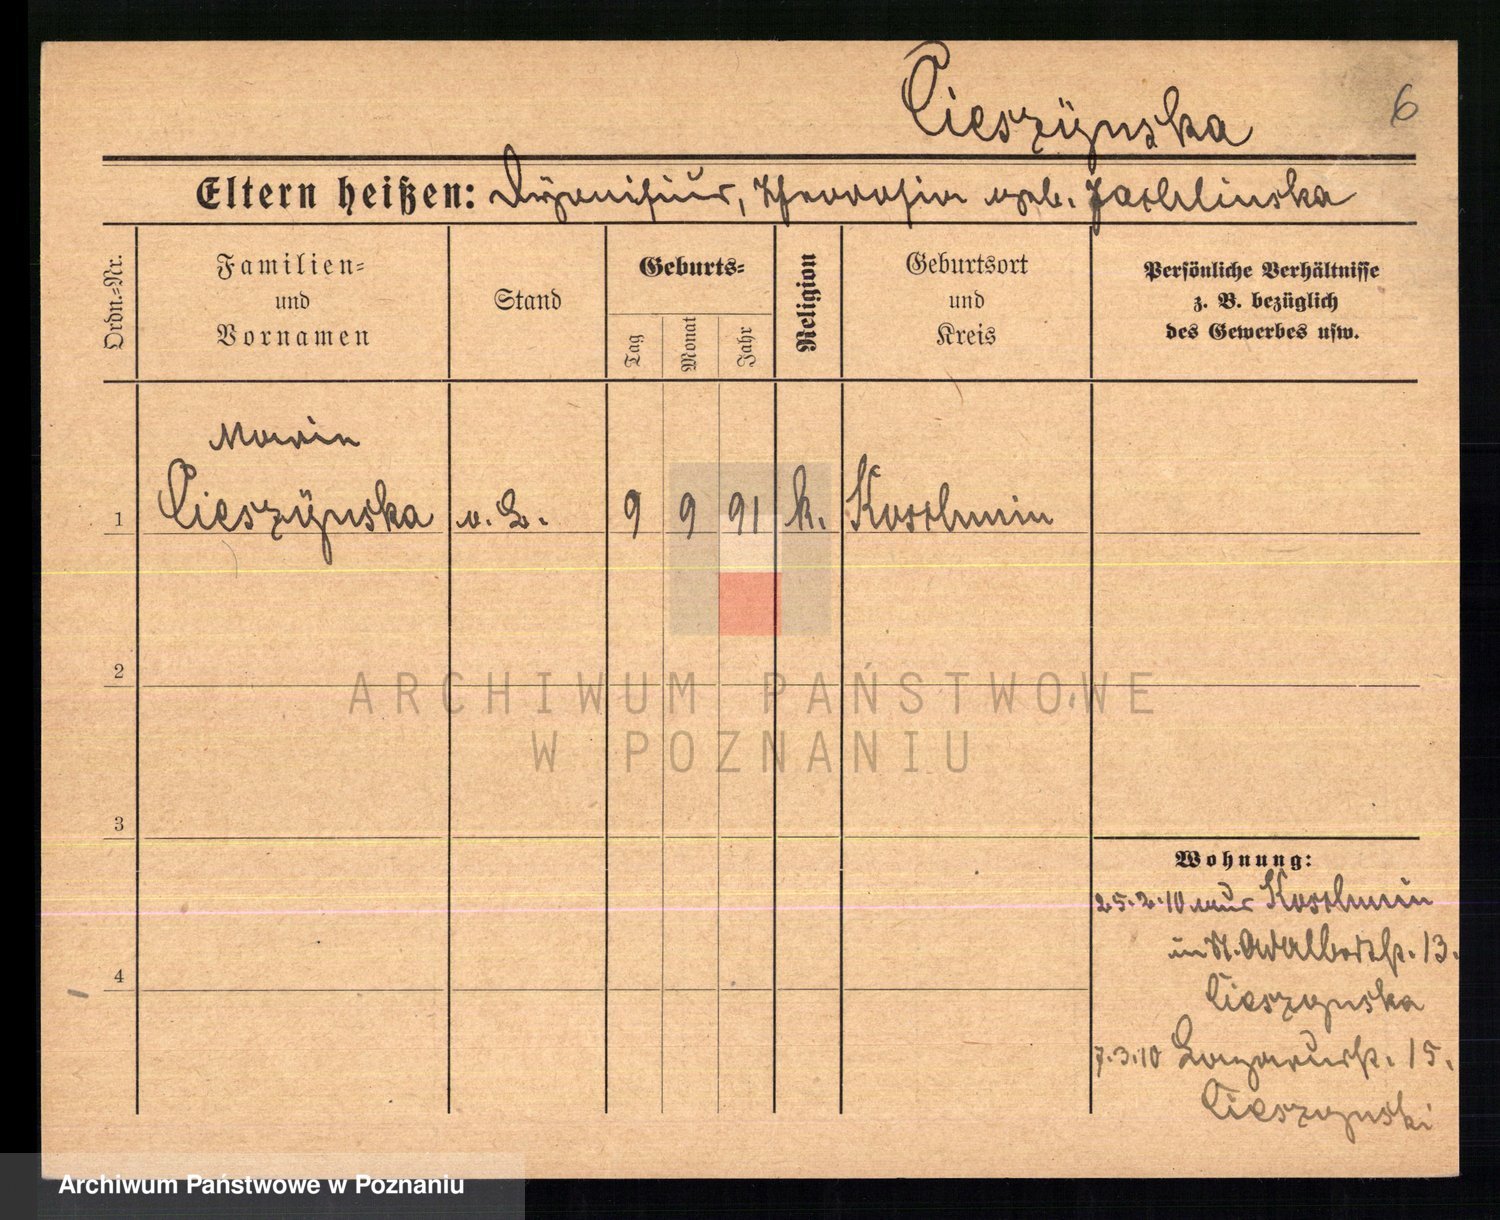 Cieszÿnska
6
Eltern heißen: Dÿonisius, Theodosia geb. Jachlinska
Ordn.=Nr.
Familien=
und
Vornamen
Stand
Geburts=
Tag
Monat
Jahr
Religion
Geburtsort
und
Kreis
Persönliche Verhältnisse
z. B. bezüglich
des Gewerbes usw.
Maria
1 Cieszÿnska o. G. 9 9 91 k. Koschmin
2
ARCHIWUM PAŃSTWOWE
W POZNANIU
3
Wohnung:
25.2.10 aus Koschmin
in St. Adalbertstr. 13.
Cieszynska
4
7.3.10 Lazarusstr. 15.
Cieszynski
Archiwum Państwowe w Poznaniu